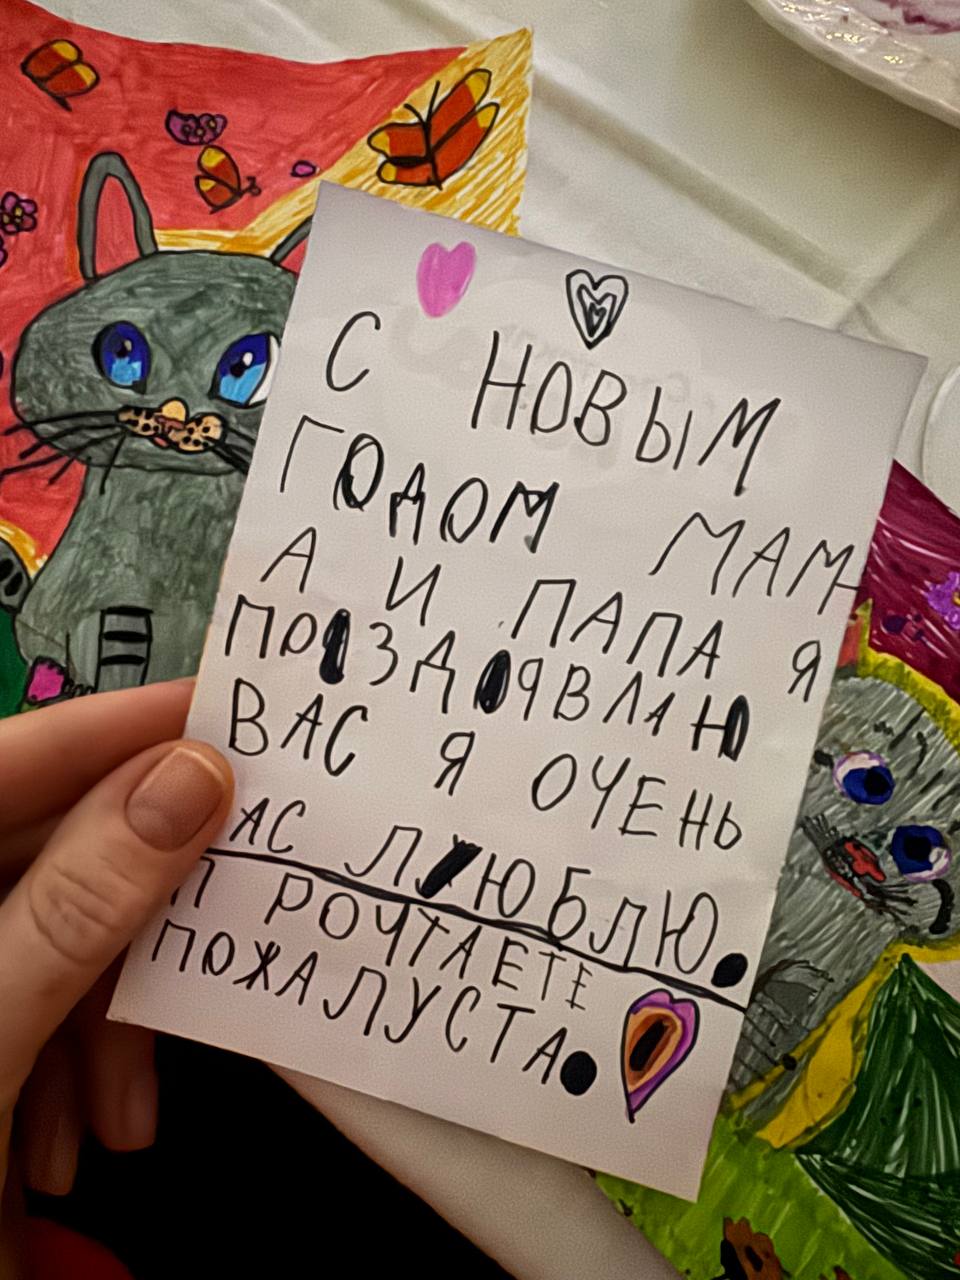 С НОВЫМ
ГОДОМ МАМ
А И ПАПА Я
ПОЗДЯВЛАЮ
ВАС Я ОЧЕНЬ
АС ЛЮБЛЮ.
П РОЧТАЕТЕ
ПОЖАЛУСТА.